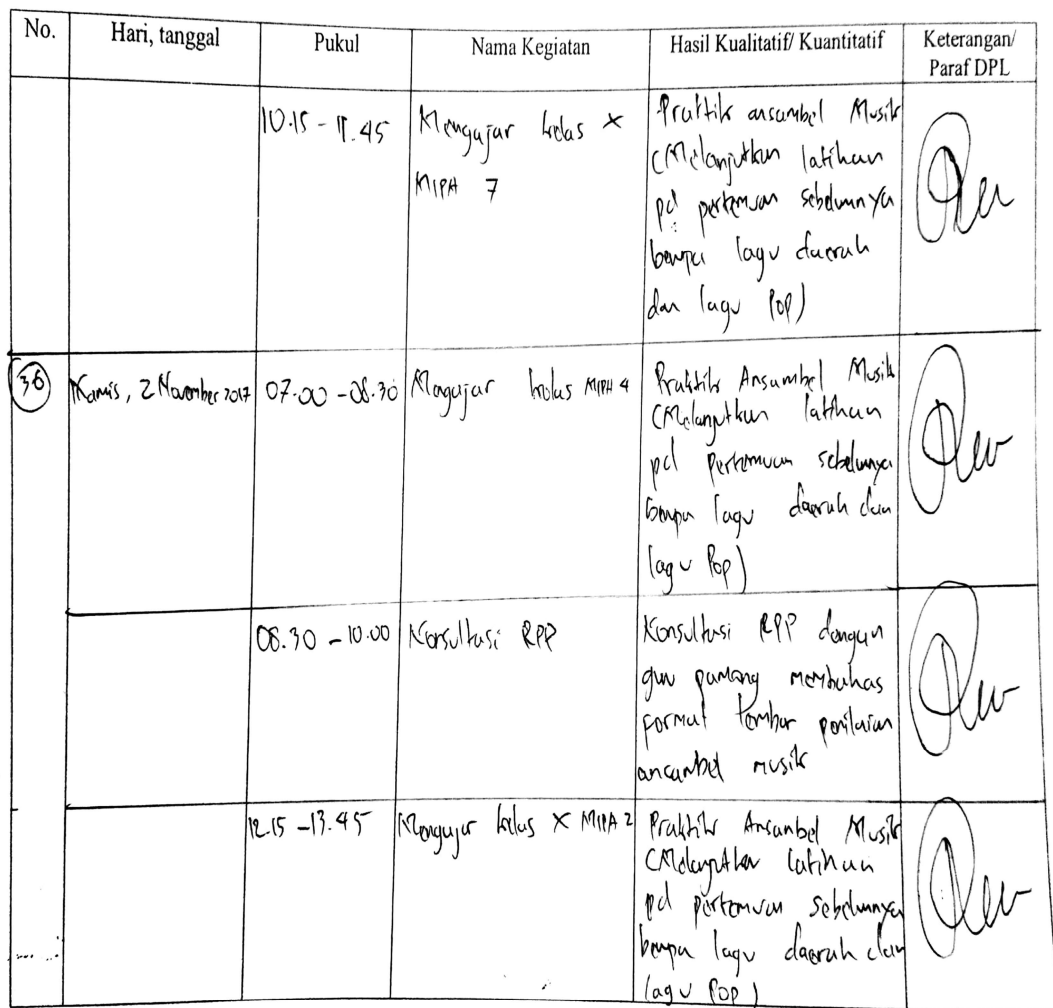 No. Hari, tanggal Pukul Nama Kegiatan Hasil Kualitatif/ Kuantitatif Keterangan/
Paraf DPL
10.15 - 11.45 Mengajar kelas X Praktik ansambel Musik
MIPA 7 (Melanjutkan latihan
pd pertemuan sebelumnya
berupa lagu daerah
dan lagu Pop)
36 Kamis, 2 November 2017 07.00 - 08.30 Mengajar kelas MIPA 4 Praktik Ansambel Musik
(Melanjutkan latihan
pd pertemuan sebelumnya
berupa lagu daerah dan
lagu Pop)
08.30 - 10.00 Konsultasi RPP Konsultasi RPP dengan
guru pamong membahas
format lembar penilaian
ansambel musik
12.15 - 13.45 Mengajar kelas X MIPA 2 Praktik Ansambel Musik
(Melanjutkan latihan
pd pertemuan sebelumnya
berupa lagu daerah dan
lagu Pop)